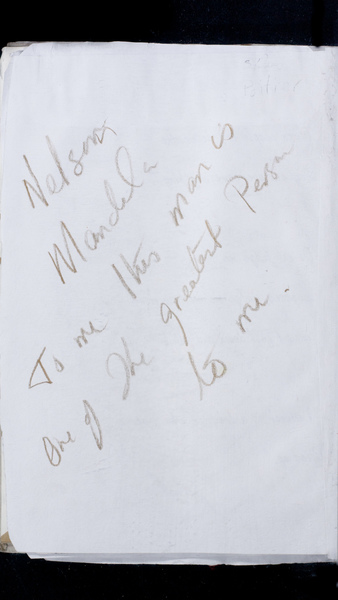 Nelson
Mandela
To me this man is
one of the greatest Person
to me.